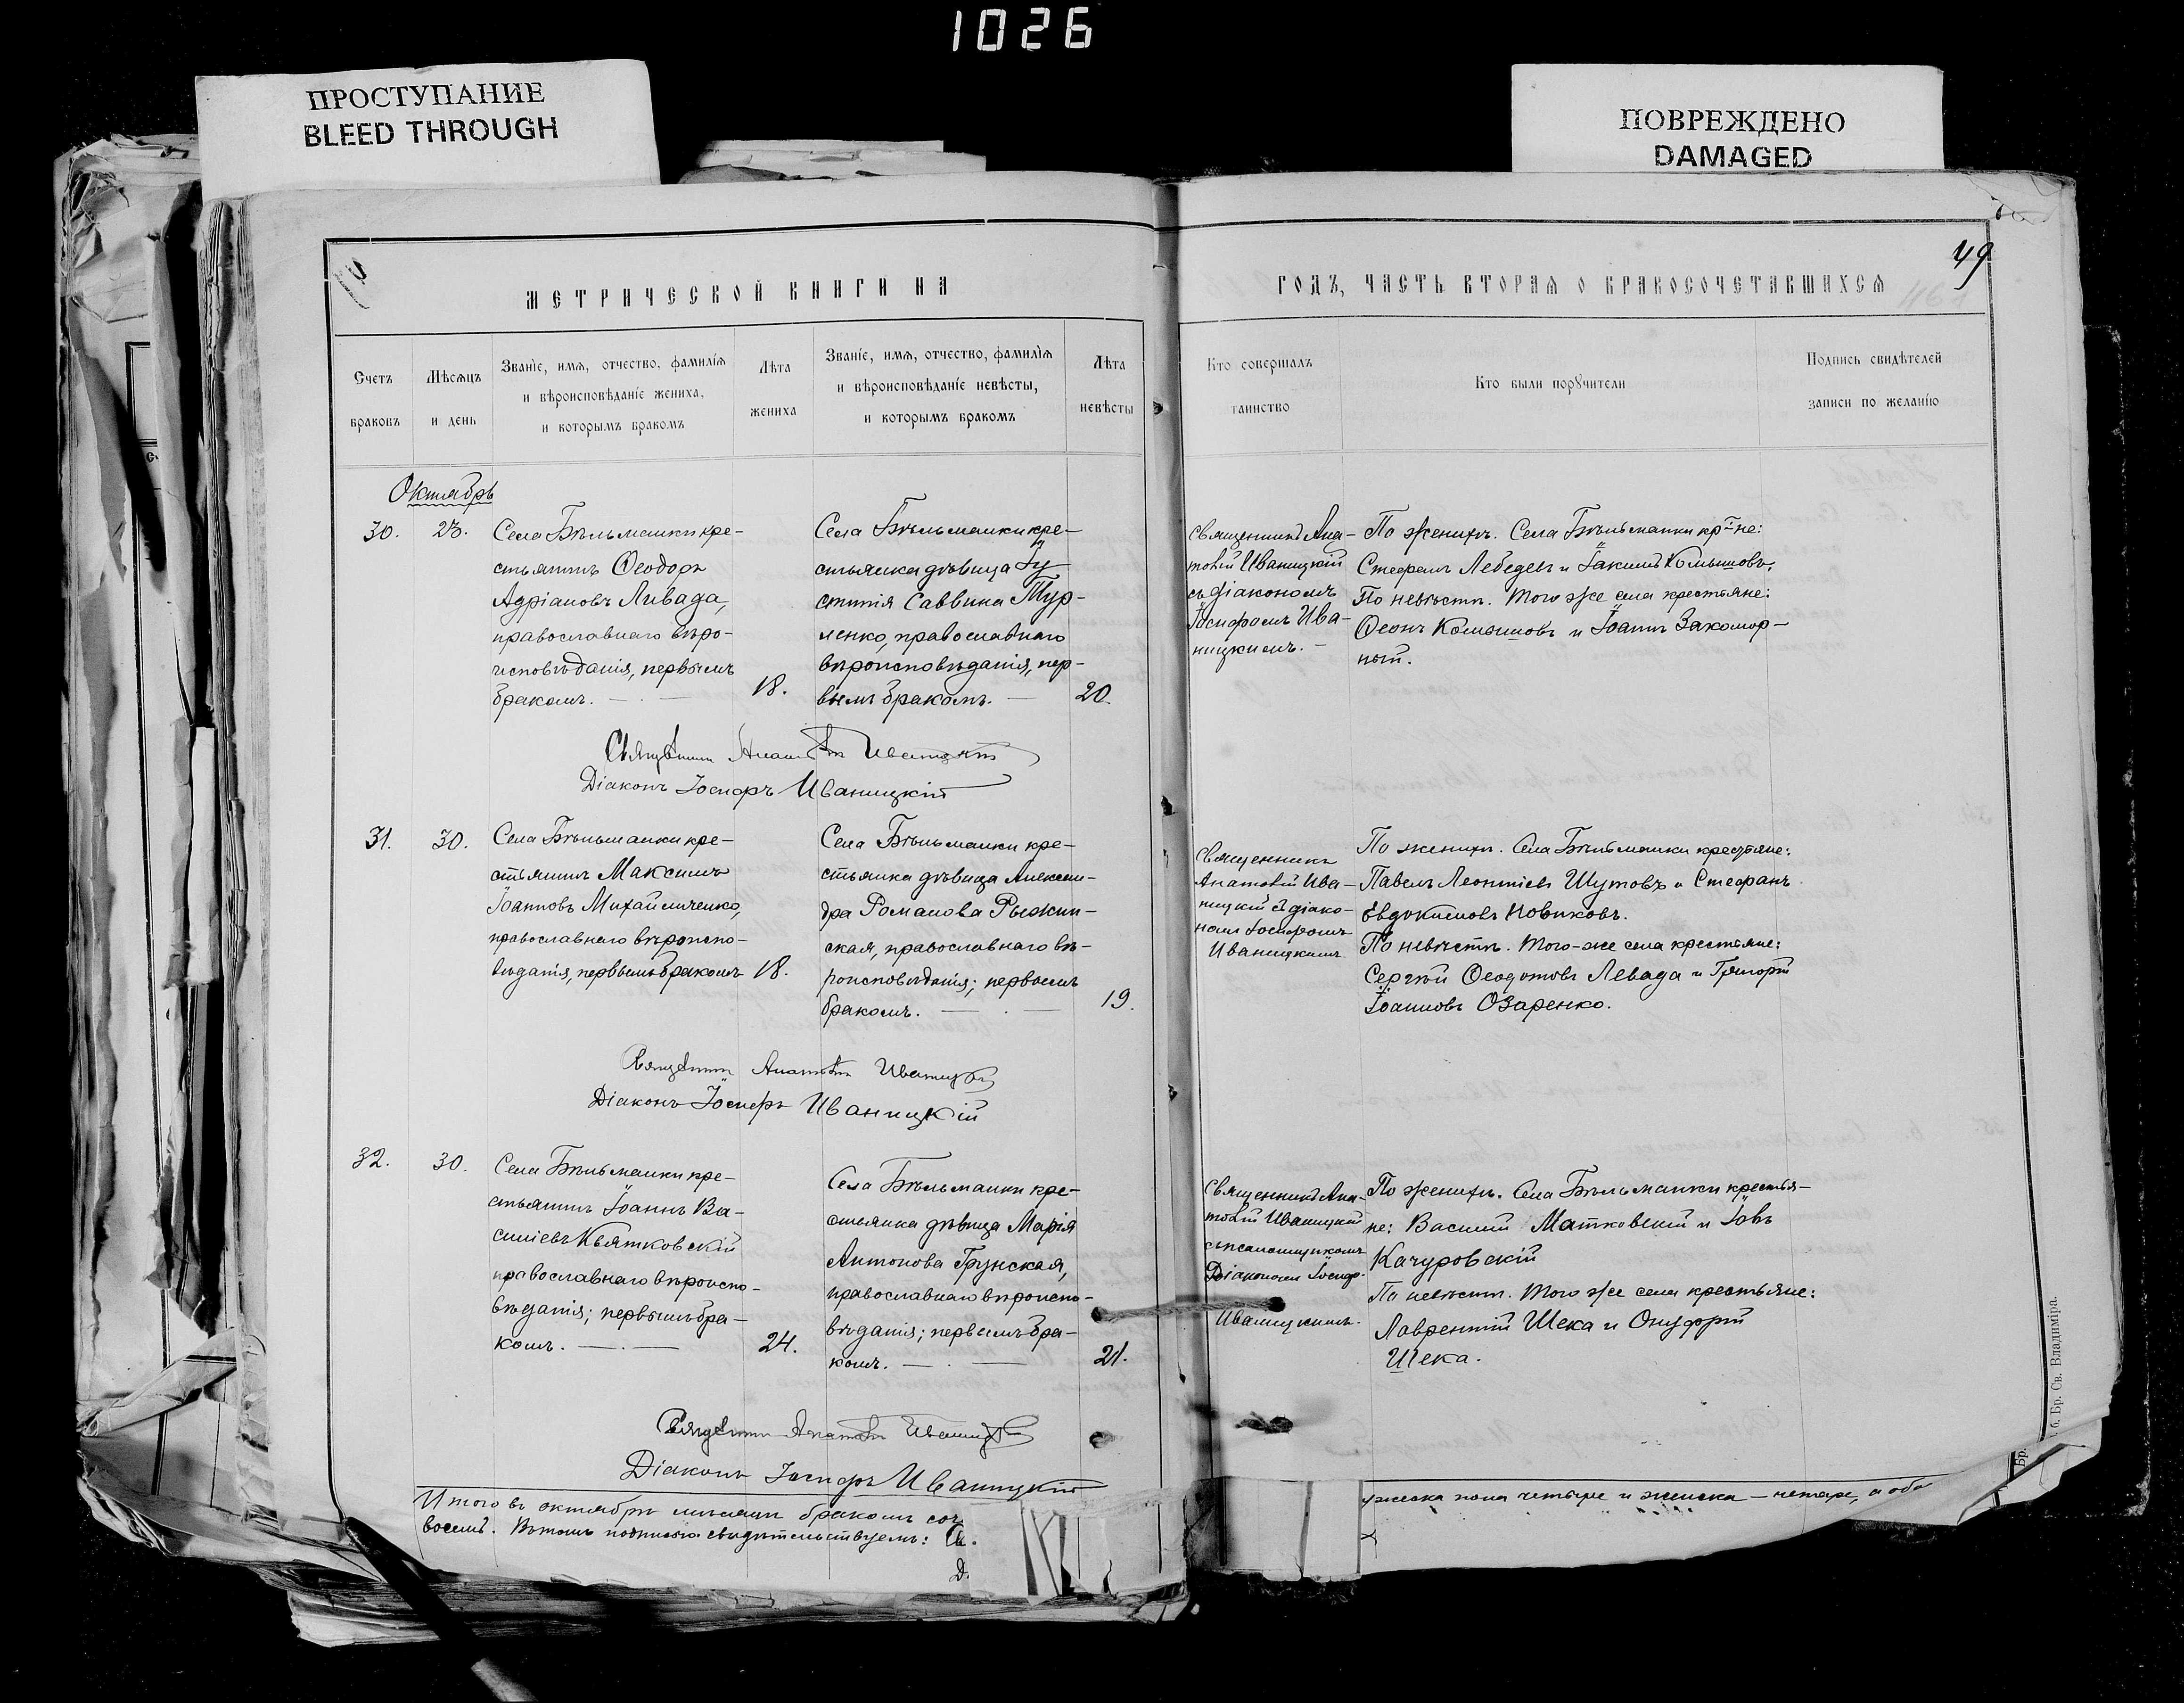 1026
ПРОСТУПАНИЕ
BLEED THROUGH
ПОВРЕЖДЕНО
DAMAGED
49
МЕТРИЧЕСКОЙ КНИГИ НА
ГОДЪ, ЧАСТЬ ВТОРАЯ О БРАКОСОЧЕТАВШИХСЯ
Счетъ
браковъ
Мѣсяцъ
и день
Званіе, имя, отчество, фамилія
и вѣроисповѣданіе жениха,
и которымъ бракомъ
Лѣта
жениха
Званіе, имя, отчество, фамилія
и вѣроисповѣданіе невѣсты,
и которымъ бракомъ
Лѣта
невѣсты
Кто совершалъ
таинство
Кто были поручители
Подпись свидѣтелей
записи по желанію
Октябрь
30.
23.
Села Бѣльманки кре-
стьянинъ Ѳеодоръ
Адріановъ Ливада,
православнаго вѣро-
исповѣданія, первымъ
бракомъ.
18.
Села Бѣльманки кре-
стьянка дѣвица Іу
стинія Саввина Тур-
ленко, православнаго
вѣроисповѣданія, пер-
вымъ бракомъ.
20.
Священникъ Ана-
толій Иваницкій
съ діакономъ
Іосифомъ Ива-
ницкимъ.
По женихѣ. Села Бѣльманки кр-не:
Стефанъ Лебедевъ и Іакимъ Комышовъ.
По невѣстѣ. Того же села крестьяне:
Ѳеонъ Комышовъ и Іоаннъ Закомор-
ный.
Священникъ Анатолій Иваницкій
Діаконъ Іосифъ Иваницкій
31.
30.
Села Бѣльманки кре-
стьянинъ Максимъ
Іоанновъ Михайличенко,
православнаго вѣроиспо-
вѣданія, первымъ бракомъ
18.
Села Бѣльманки кре-
стьянка дѣвица Алексан-
дра Романова Рыжин-
ская, православнаго вѣ-
роисповѣданія; первымъ
бракомъ.
19.
Священникъ
Анатолій Ива-
ницкій съ діако-
номъ Іосифомъ
Иваницкимъ
По женихѣ. Села Бѣльманки крестьяне:
Павелъ Леонтіевъ Шутовъ и Стефанъ
Евдокимовъ Новиковъ.
По невѣстѣ. Того-же села крестьяне:
Сергѣй Ѳеодотовъ Левада и Григорій
Іоанновъ Озаренко.
Священникъ Анатолій Иваницкій
Діаконъ Іосифъ Иваницкій
32.
30.
Села Бѣльманки кре-
стьянинъ Іоаннъ Ва-
силіевъ Квятковскій
православнаго вѣроиспо-
вѣданія; первымъ бра-
комъ.
24.
Села Бѣльманки кре-
стьянка дѣвица Марія
Антонова Грунская,
православнаго вѣроиспо-
вѣданія; первымъ бра-
комъ.
21.
Священникъ Ана-
толій Иваницкій
съ псаломщикомъ
Діакономъ Іосиф.
Иваницкимъ.
По женихѣ. Села Бѣльманки крестья-
не: Василій Матковскій и Іовъ
Качуровскій
По невѣстѣ. Того же села крестьяне:
Лаврентій Шека и Онуфрій
Шека.
Священникъ Анатолій Иваницкій
Діаконъ Іосифъ Иваницкій
Итого въ октябрѣ мѣсяцѣ бракомъ соч
восемь. Въ томъ подписью свидѣтельствуемъ: Св.
Д.
ужеска пола четыре и женска — четыре, а обо
б. Бр. Св. Владиміра.